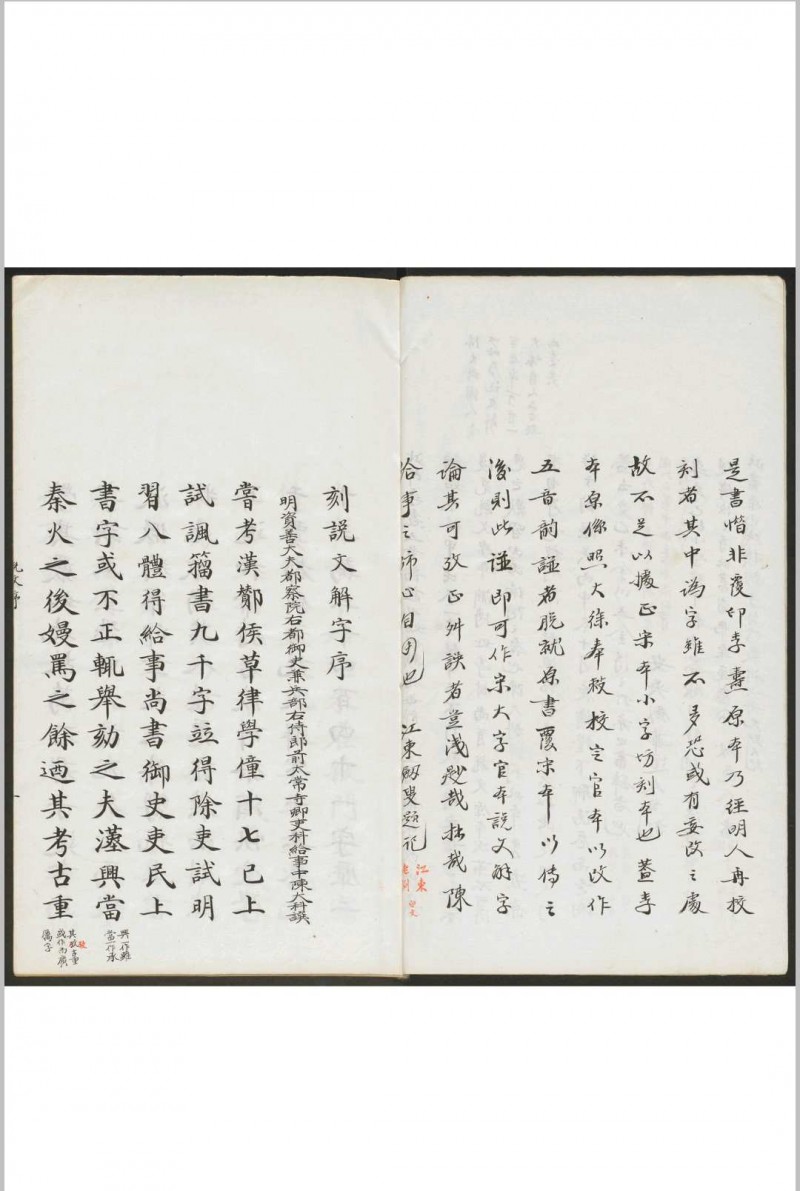 是書惜非覆印李燾原本乃經明人再挍
刻者其中譌字雖不多恐或有妄改之處
故不足以據正宋本小字坊刻本也蓋李
本原係照大徐奉敕校定官本以改作
五音韵譜者脱就原書覆宋本以傳之
後則此譜即可作宋大字官本說文解字
論其可攷正舛誤者豈淺尟哉拙哉陳
給事之師心自用也 江東劔叟題記
江東
刻説文解字序
明資善大夫都察院右都御史兼兵部右侍郎前太常寺卿吏科給事中陳大科譔
嘗考漢酇侯草律學僮十七已上
試諷籀書九千字竝得除吏試明
習八體得給事尚書御史吏民上
書字或不正輒舉劾之夫漢興當
秦火之後嫚罵之餘迺其考古重
興一作雖
當一作承
其攷古重